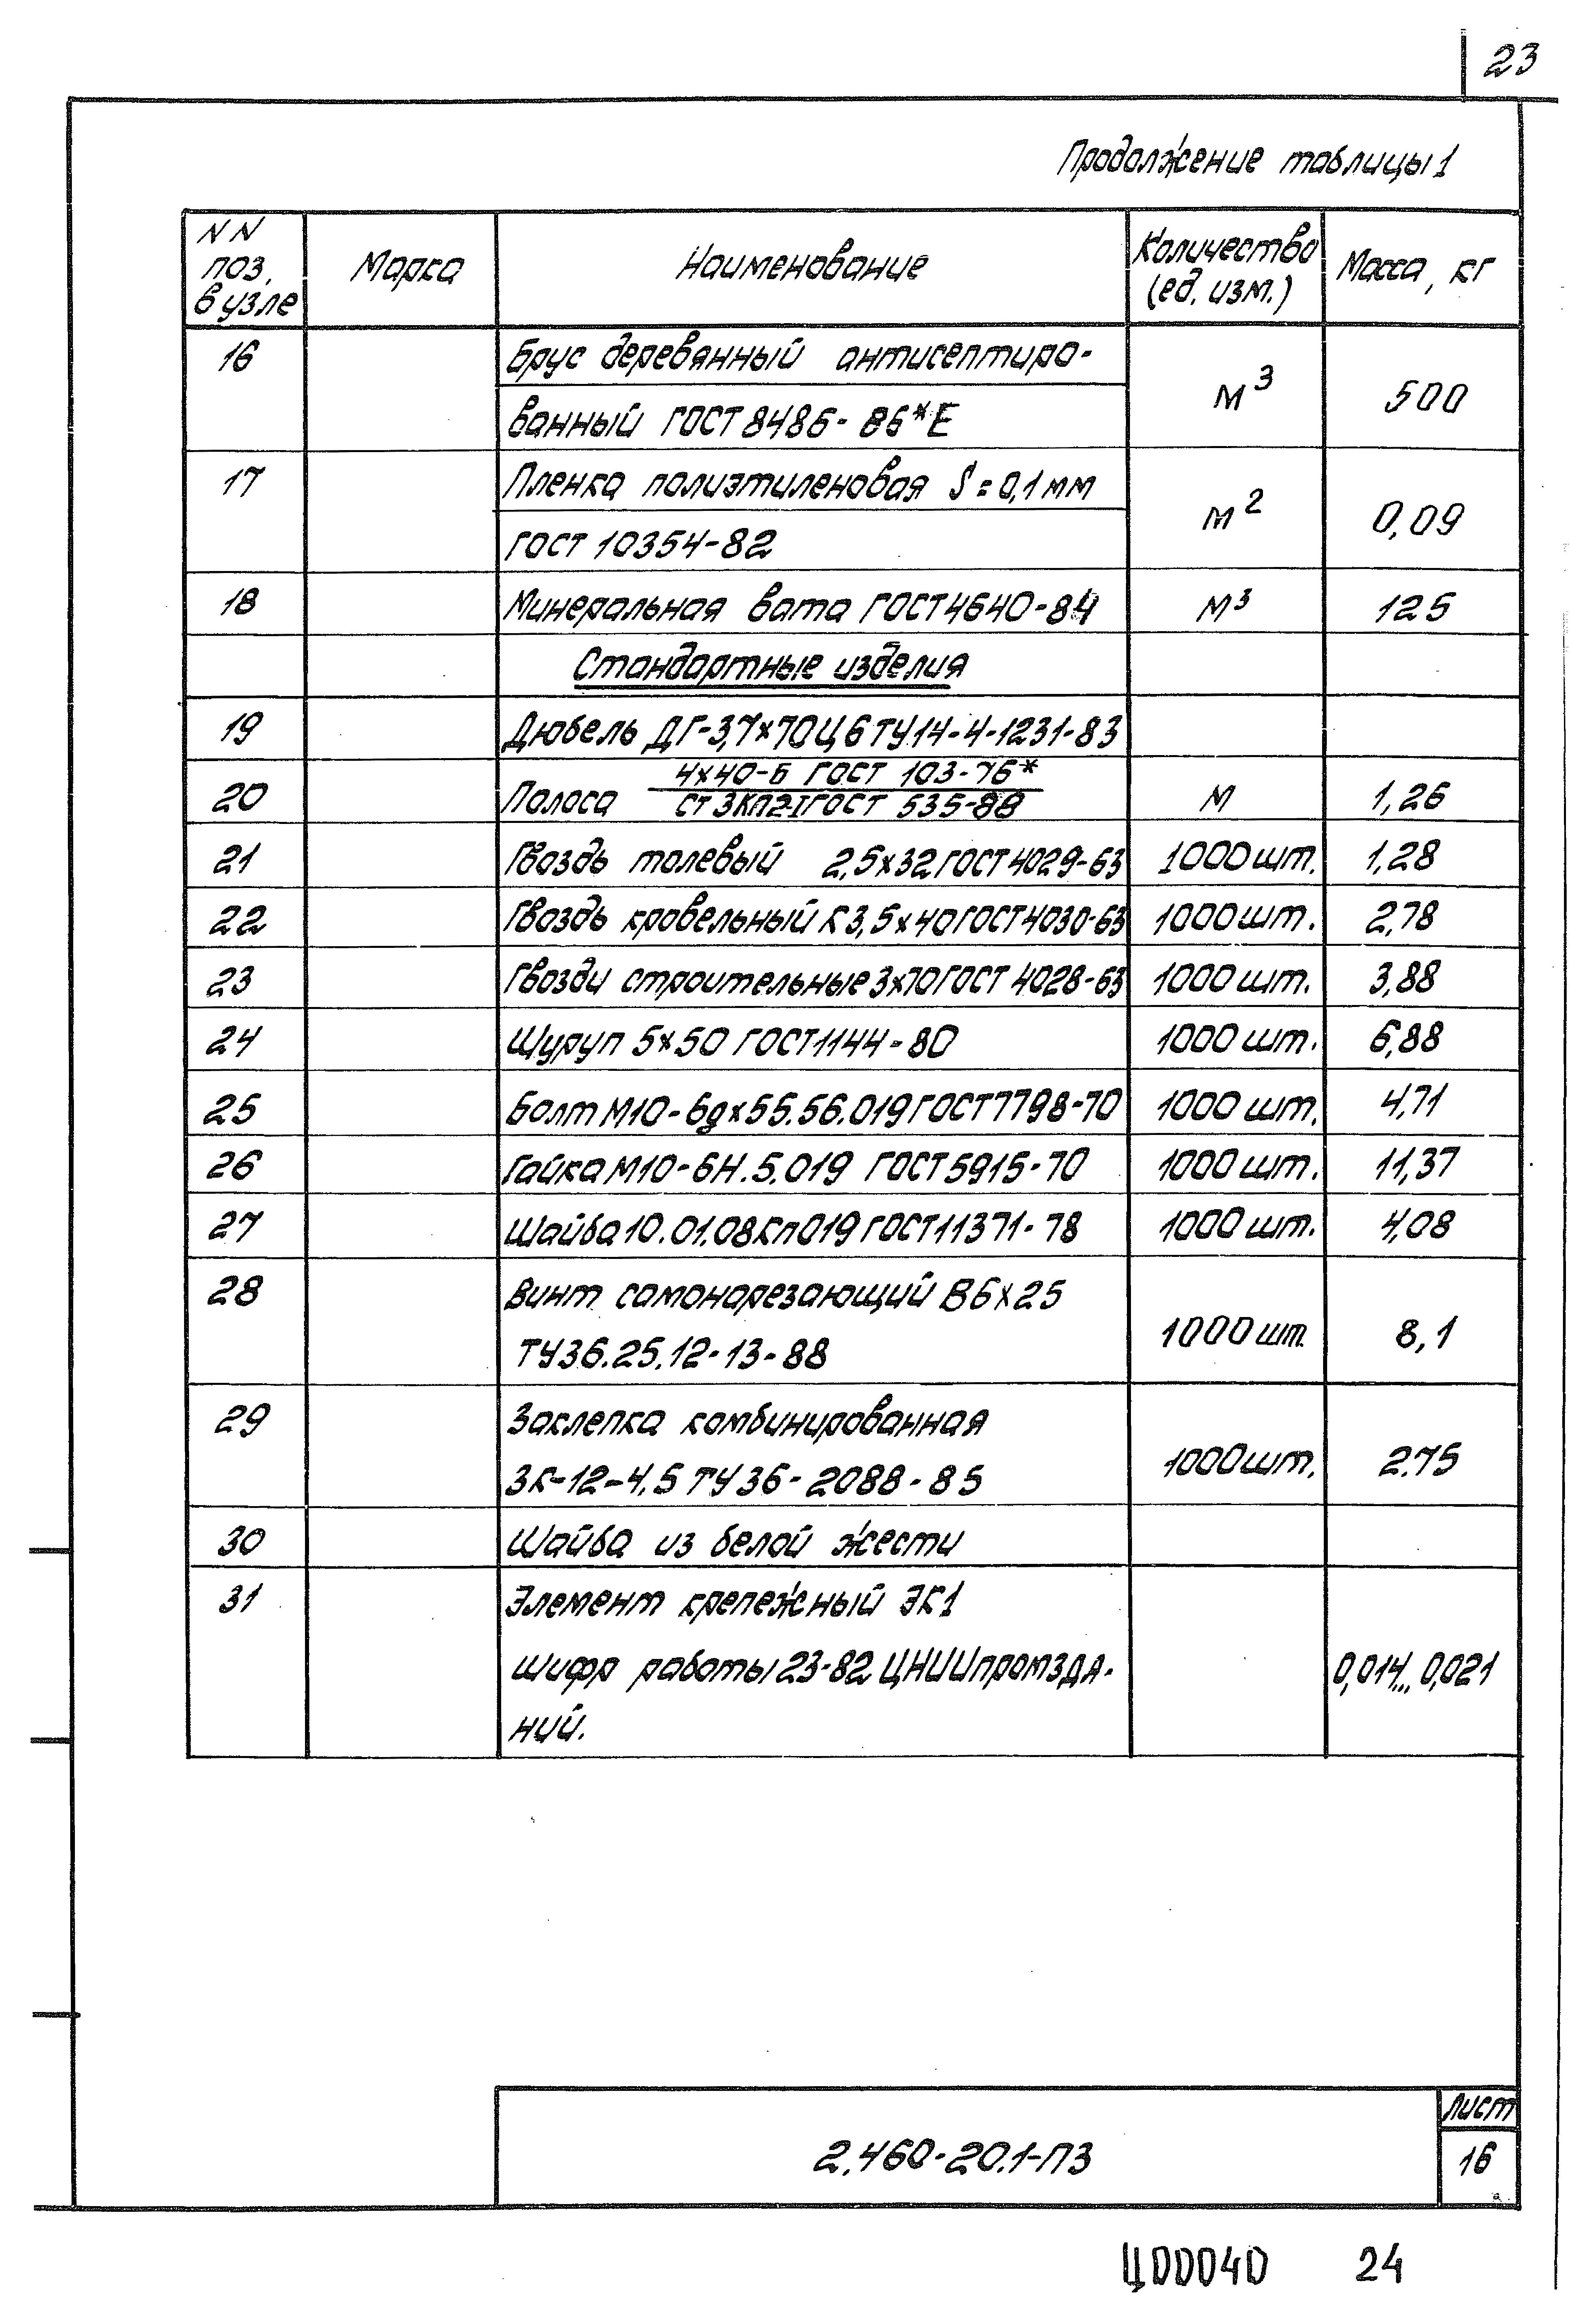 23
Продолжение таблицы 1
NN поз. в узле | Марка | Наименование | Количество (ед. изм.) | Масса, кг
16 | Брус деревянный антисептиро-
ванный ГОСТ 8486-86*Е | м³ | 500
17 | Пленка полиэтиленовая S=0,1 мм
ГОСТ 10354-82 | м² | 0,09
18 | Минеральная вата ГОСТ 4640-84 | м³ | 125
Стандартные изделия
19 | Дюбель ДГ-3,7×70Ц6 ТУ14-4-1231-83
20 | Полоса 4×40-Б ГОСТ 103-76* / Ст3КП2-I ГОСТ 535-88 | м | 1,26
21 | Гвоздь толевый 2,5×32 ГОСТ 4029-63 | 1000 шт. | 1,28
22 | Гвоздь кровельный К3,5×40 ГОСТ 4030-63 | 1000 шт. | 2,78
23 | Гвозди строительные 3×70 ГОСТ 4028-63 | 1000 шт. | 3,88
24 | Шуруп 5×50 ГОСТ 1144-80 | 1000 шт. | 6,88
25 | Болт М10-6g×55.56.019 ГОСТ 7798-70 | 1000 шт. | 4,71
26 | Гайка М10-6Н.5.019 ГОСТ 5915-70 | 1000 шт. | 11,37
27 | Шайба 10.01.08кп019 ГОСТ 11371-78 | 1000 шт. | 4,08
28 | Винт самонарезающий В6×25
ТУ36.25.12-13-88 | 1000 шт. | 8,1
29 | Заклепка комбинированная
ЗК-12-4,5 ТУ 36-2088-85 | 1000 шт. | 2.75
30 | Шайба из белой жести
31 | Элемент крепежный ЭК1
шифр работы 23-82 ЦНИИпромзда-
ний. | 0,014...0,021
2.460-20.1-ПЗ
Лист
16
Ц00040 24